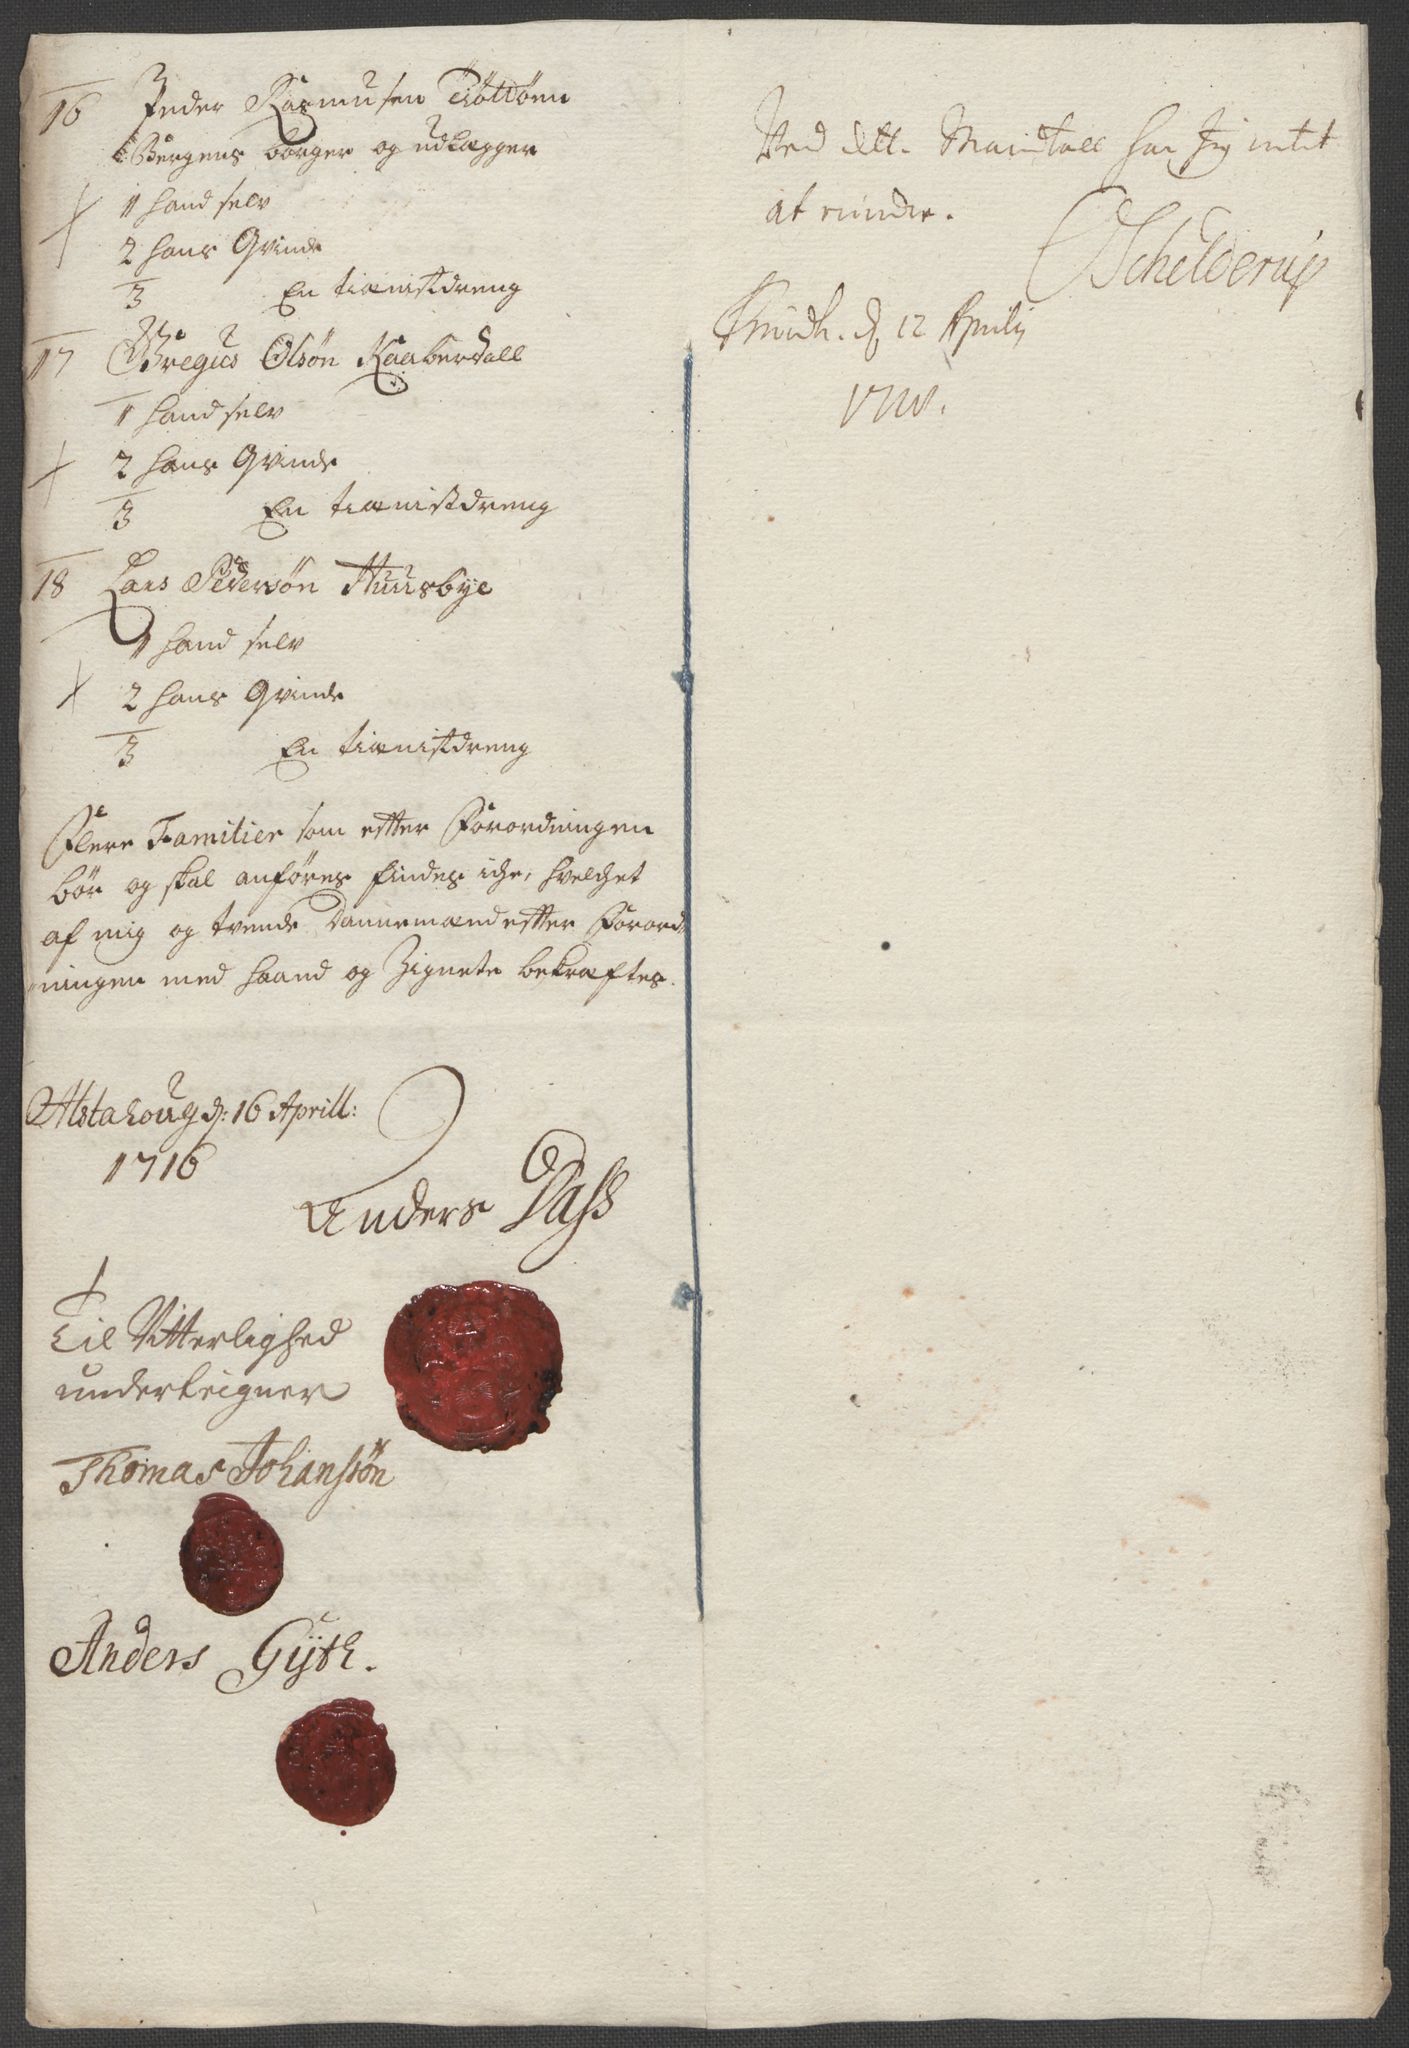 16 Peder Rasmusen Tiøttøen
Bergens borger og udlægger
1 hand selv
2 hans Qvinde
3 En tienistdreng
17 Gregus Olsøn Kaaberdall
1 hand selv
2 hans Qvinde
3 En tienistdreng
18 Lars Pedersøn Huusbye
1 hand selv
2 hans Qvinde
3 En tienistdreng
Flere Familier som efter Forordningen
bør og skal anføres findes iche, hvelchet
af mig og tvende Dannemænd efter Forord
ningen med haand og Zignete bekræftes.
Alstahoug d: 16 Aprill:
1716
Anders Dass
Til Vitterlighed
underteigner
Thomas Johansøn
Anders Gÿth.
Ved dette Mandtall har Jeg intet
at erindre.
Schelderup
d 12 Aprilij